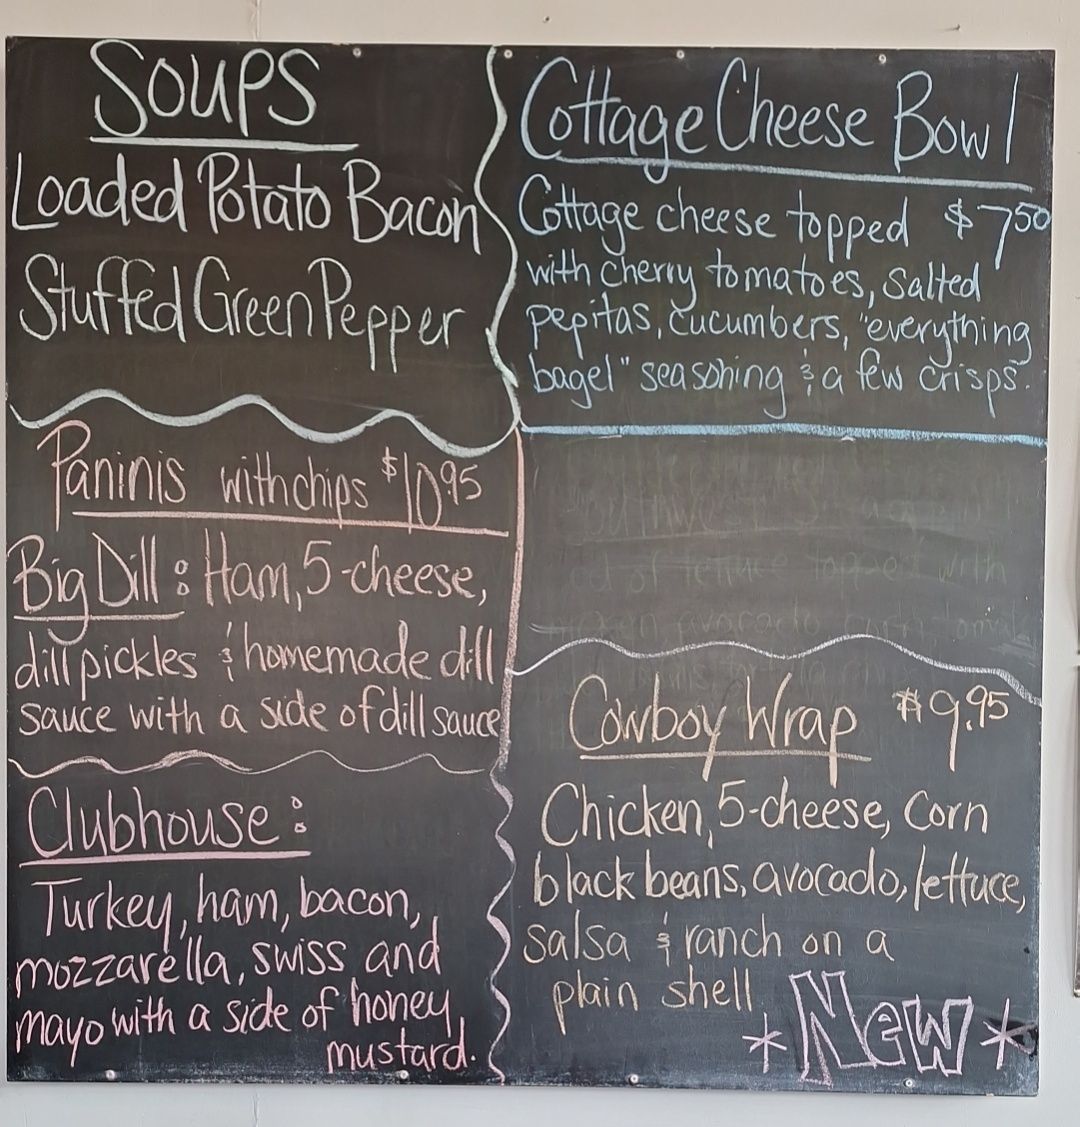 Soups
Loaded Potato Bacon
Stuffed Green Pepper
Cottage Cheese Bowl
Cottage cheese topped $7.50
with cherry tomatoes, salted
pepitas, cucumbers, "everything
bagel" seasoning & a few crisps.
Paninis with chips $10.95
Big Dill: Ham, 5-cheese,
dill pickles & homemade dill
sauce with a side of dill sauce
Clubhouse:
Turkey, ham, bacon,
mozzarella, swiss and
mayo with a side of honey
mustard.
of lettuce topped with
avocado corn
Cowboy Wrap $9.95
Chicken, 5-cheese, corn
black beans, avocado, lettuce,
salsa & ranch on a
plain shell
*New*